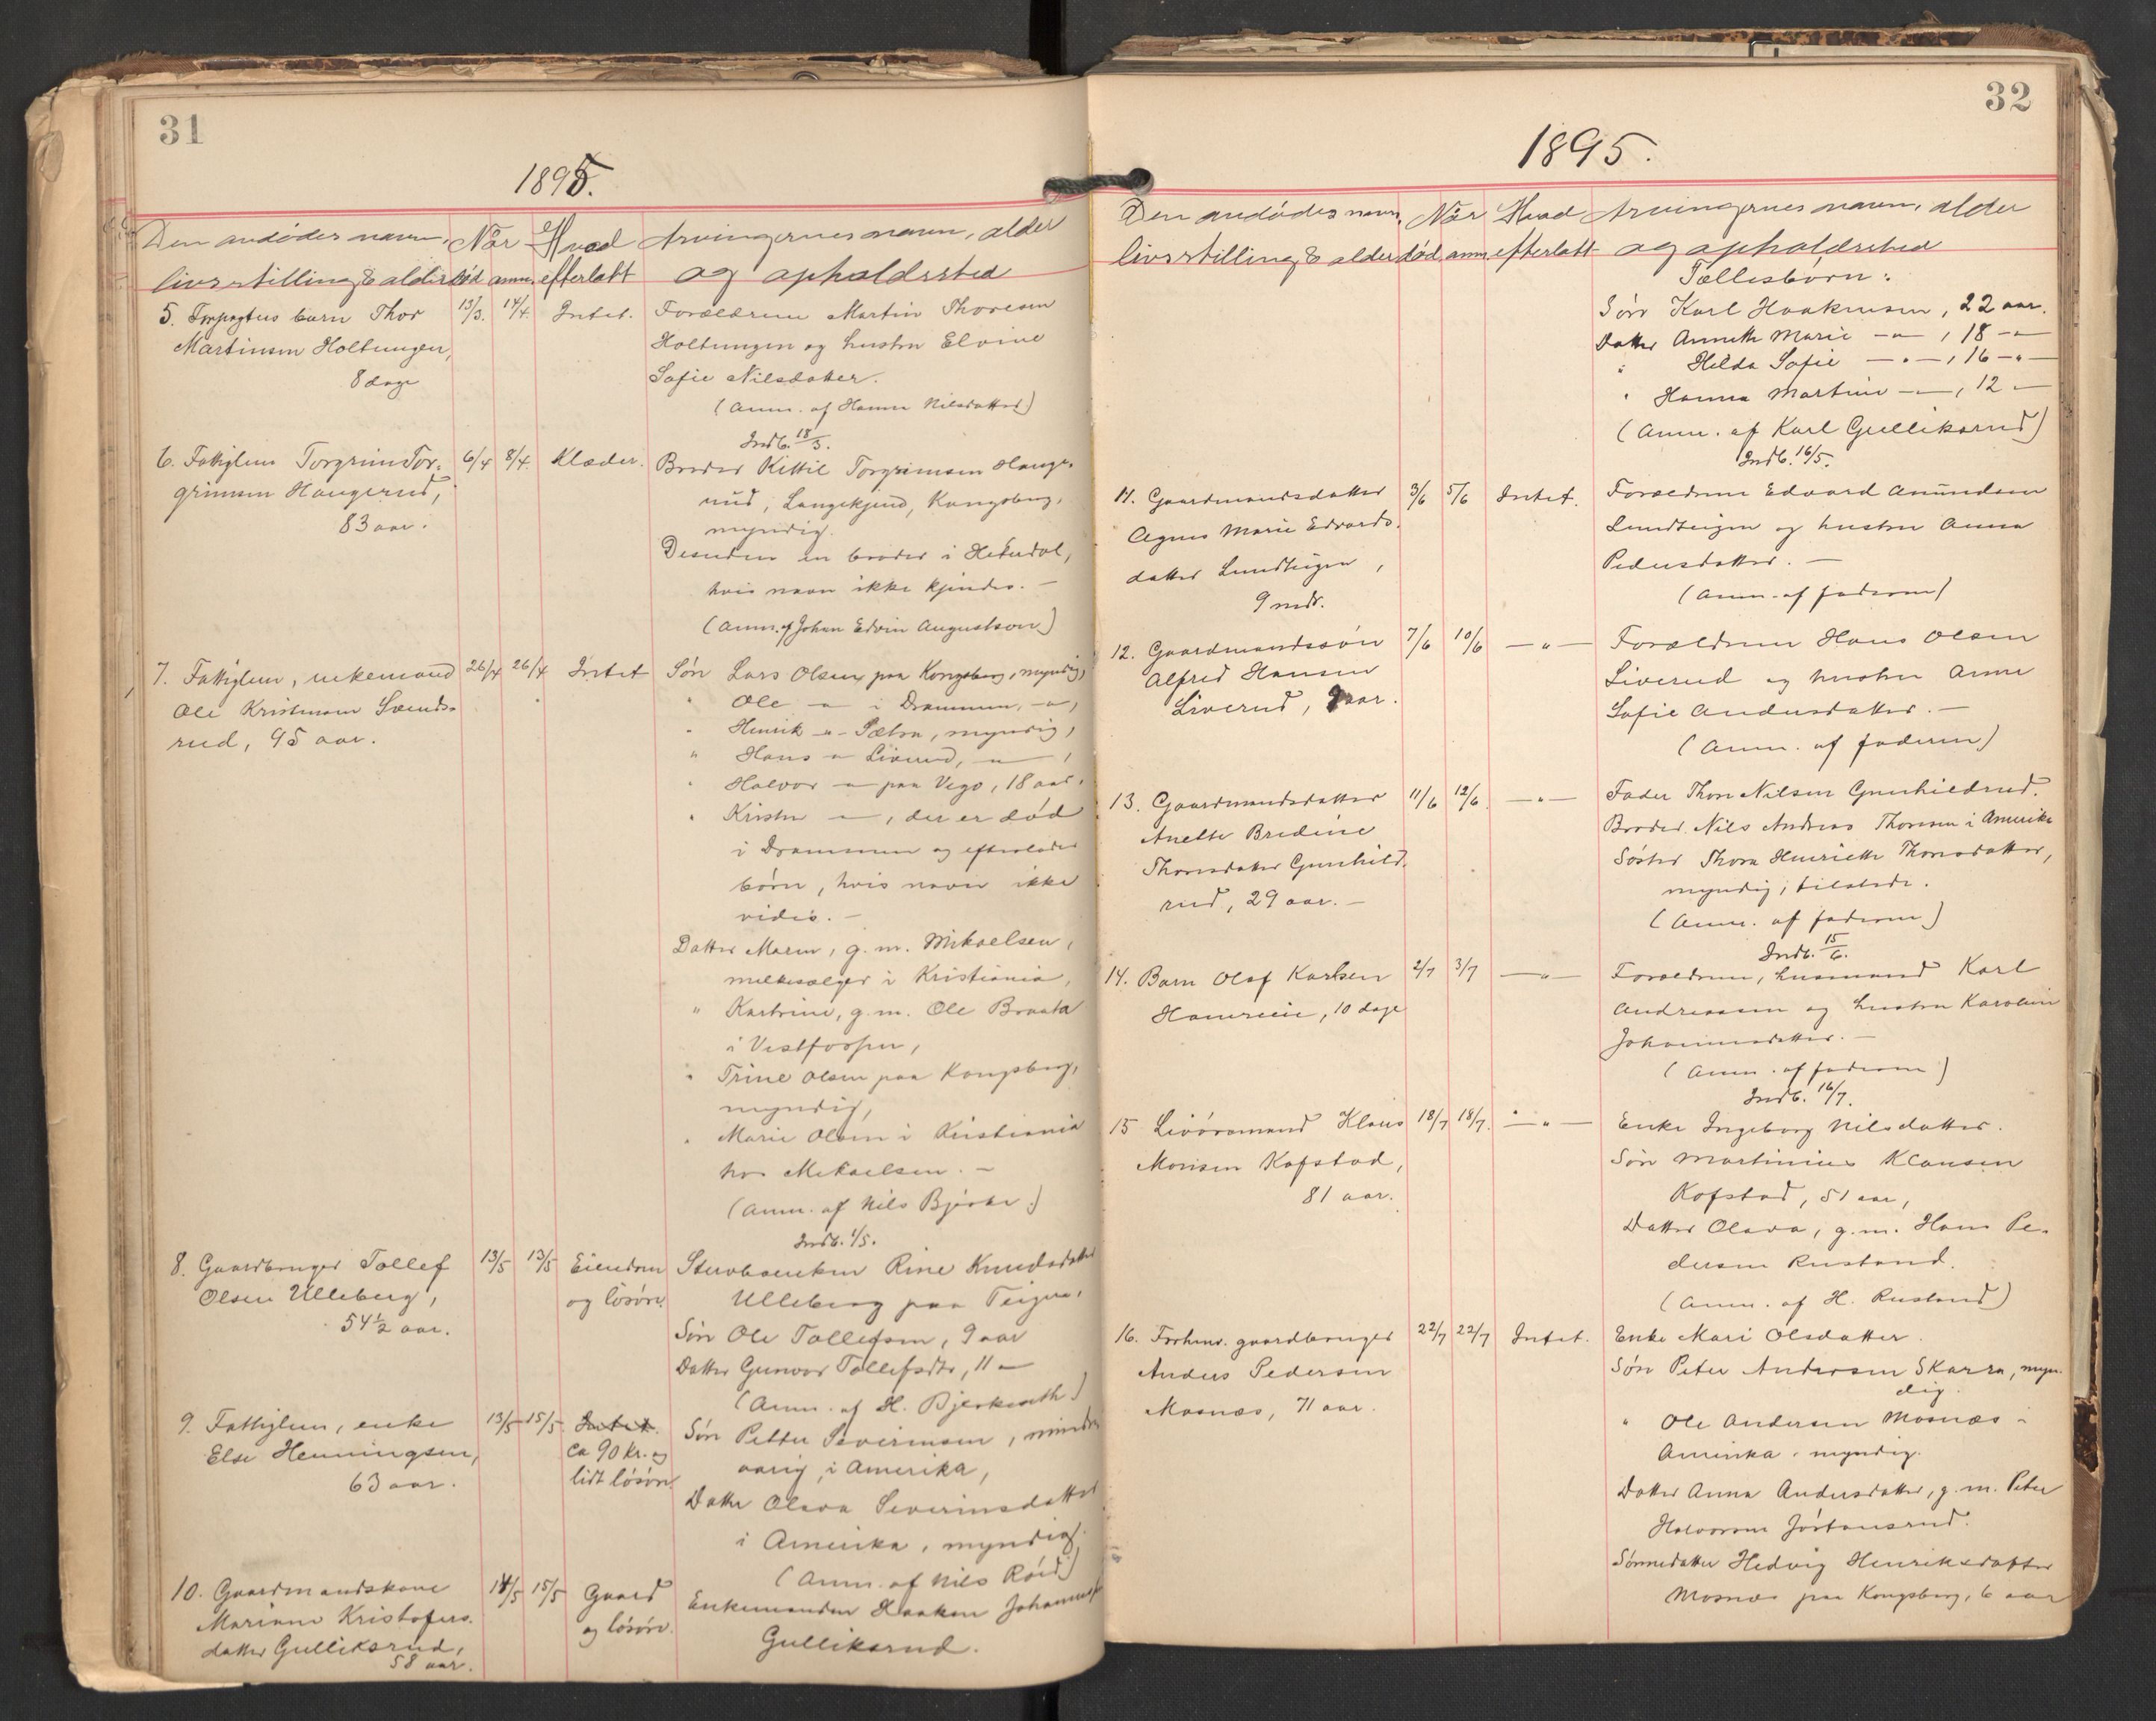 31
1895.
Den avdødes navn, Når Hvad Arvingernes navn, alder
livsstilling & alder død anm. efterlatt og opholdssted
5. Forpagters barn Thor 13/3. 14/4. Intet. Forældrene Martin Thoresen
Martinsen Holtungen, Holtungen og hustru Elvine
8 dage Sofie Nilsdatter.
(Anm. af Hanna Nilsdatter)
Indb. 18/3.
6. Fattiglem Torgrim Tor- 6/4 8/4. Klæder. Broder Kittil Torgrimsen Hauge-
grimsen Haugerud, rud, Langekjend, Kongsberg,
83 aar. myndig.
Desuden en broder i Hiterdal,
hvis navn ikke kjendes. —
(Anm. af Johan Edvin Augustson)
7. Fattiglem, enkemand 26/4 26/4 Intet Søn Lars Olsen paa Kongsberg, myndig,
Ole Kristensen Svends- " Ole —"— i Drammen, —"—,
rud, 95 aar. " Henrik —"— Sætra, myndig,
" Hans —"— Liverud, —"—,
" Halvor —"— paa Vego, 18 aar,
" Krister —"—, der er død
i Drammen og efterlader
børn, hvis navn ikke
vides. —
Datter Maren, g. m. Mikaelsen,
melkesælger i Kristiania,
" Kartrine, g. m. Ole Braata
i Vestfossen,
" Trine Olsen paa Kongsberg,
myndig,
" Marie Olsen i Kristiania
hos Mikaelsen. —
(Anm. af Nils Bjørke.)
Indb. 1/5.
8. Gaardbruger Tollef 13/5 13/5 Eiendom Stervboenken Rine Knudsdatter
Olsen Ulleberg, og løsøre. Ulleberg paa Teigen,
54½ aar. Søn Ole Tollefsen, 9 aar
Datter Gunvor Tollefsdtr, 11 —"—
(Anm. af H. Bjerknuth)
9. Fattiglem, enke 13/5 15/5. Intet. Søn Petter Severinsen, minder-
Else Henningsen, ca 90 kr. og aarig, i Amerika,
63 aar. lidt løsøre Datter Olava Severinsdatter
i Amerika, myndig.
(Anm. af Nils Røid)
10. Gaardmandskone 14/5 15/5 Gaard Enkemanden Haaken Johannes
Mariane Kristofers- og løsøre. Gulliksrud.
datter Gulliksrud,
58 aar.
32
1895.
Den avdødes navn, Når Hvad Arvingernes navn, alder
livsstilling & alder død anm. efterlatt og opholdssted
Fællesbørn:
Søn Karl Haakensen, 22 aar.
Datter Annette Marie —"—, 18 —"—
" Hilda Sofie —"—, 16 —"—
" Hanna Martine —"—, 12 —
(Anm. af Karl Gulliksrud)
Indb. 16/5.
11. Gaardmandsdatter 3/6 5/6 Intet. Forældrene Edvard Amundsen
Agnes Marie Edvards- Lundteigen og hustru Anna
datter Lundteigen, Pedersdatter. —
9 mdr. (Anm. af faderen)
12. Gaardmandssøn 7/6 10/6 —"— Forældrene Hans Olsen
Alfred Hansen Liverud og hustru Anne
Liverud, 9 aar. Sofie Andersdatter. —
(Anm. af faderen)
13. Gaardmandsdatter 11/6 12/6. —"— Fader Thore Nilsen Gunhildrud.
Anette Bredine Broder Nils Andreas Thoresen i Amerika
Thoresdatter Gunhild- Søster Thora Henriette Thoresdatter,
rud, 29 aar. — myndig, tilstede.
(Anm. af faderen)
Indb. 15/6.
14. Barn Olaf Karlsen 2/7 3/7 —"— Forældrene, husmand Karl
Hamreeie, 10 dage Andreassen og hustru Karoline
Johannesdatter. —
(Anm. af faderen)
Indb. 16/7.
15 Livøremand Klaus 18/7 18/7. —"— Enke Ingeborg Nilsdatter.
Monsen Kofstad, Søn Martinius Klausen
81 aar. Kofstad, 51 aar,
Datter Olava, g. m. Hans Pe-
dersen Rustand.
(Anm. af H. Rustand)
16. Forhenv. gaardbruger 22/7 22/7 Intet. Enke Mari Olsdatter.
Anders Pedersen Søn Peter Andersen Skarra, myn-
Mosnæs, 71 aar. dig.
" Ole Andersen Mosnæs i
Amerika, myndig.
Datter Anna Andersdatter, g. m. Peter
Halvorsen Jørtansrud.
Sønnedatter Hedvig Henriksdatter
Mosnæs paa Kongsberg, 6 aar